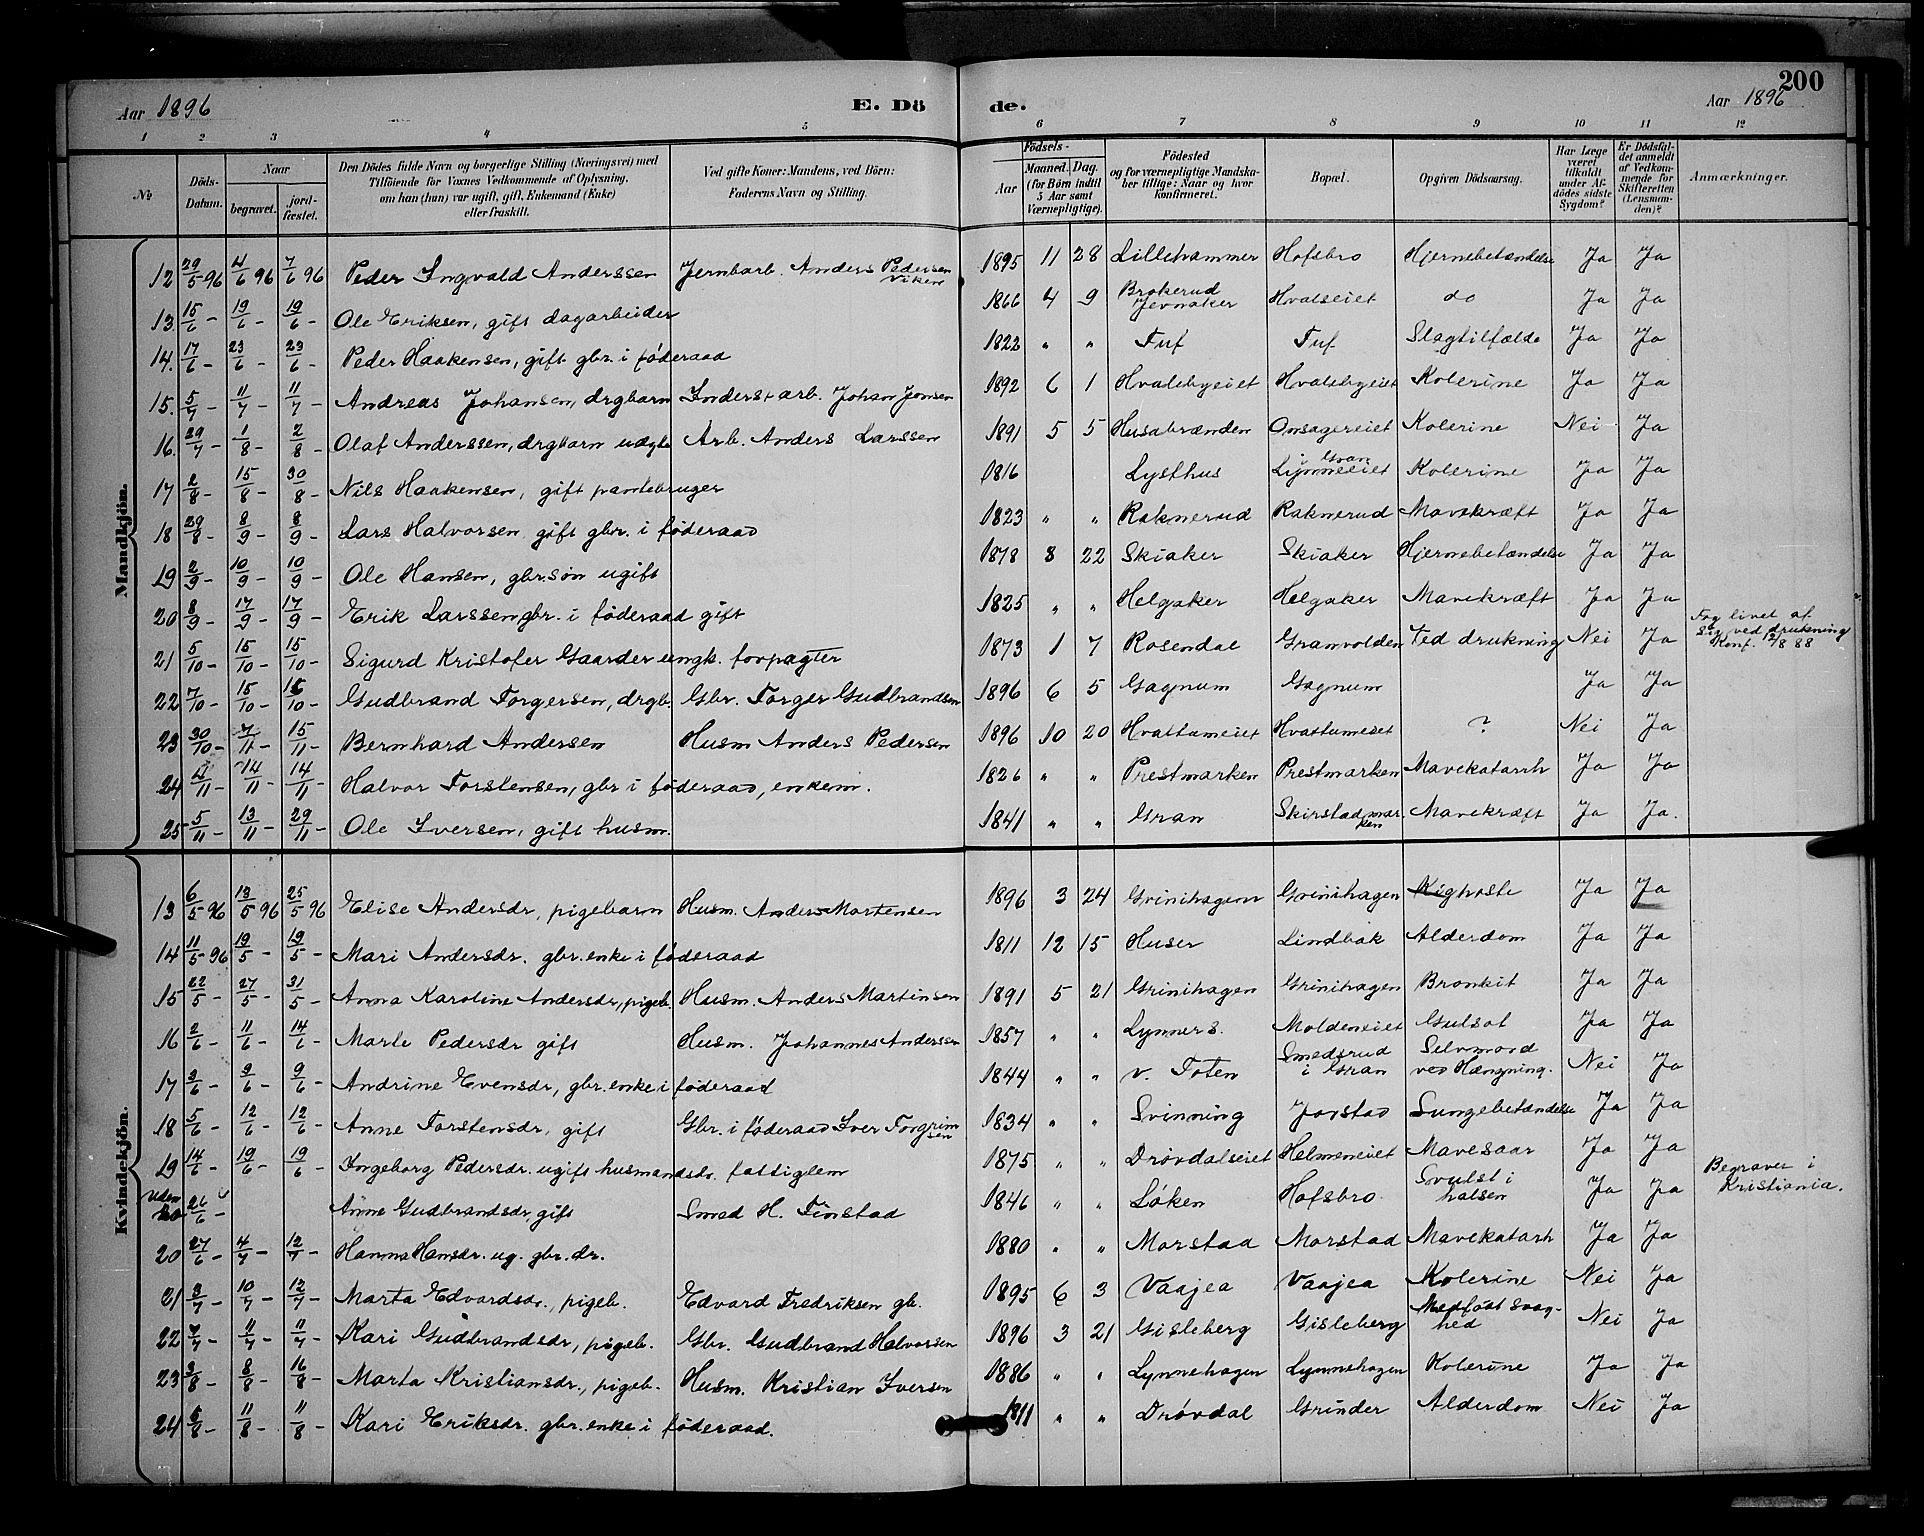 200
Aar 1896 E. Dö de. Aar 1896
1 2 3 4 5 6 7 8 9 10 11 12
№
Döds-Datum.
Naar begravet. jordfæstet.
Den Dödes fulde Navn og borgerlige Stilling (Næringsvei) med
Tilföiende for Voxnes Vedkommende af Oplysning,
om han (hun) var ugift, gift, Enkemand (Enke)
eller fraskilt.
Ved gifte Koner: Mandens, ved Börn:
Faderens Navn og Stilling.
Födsels- Aar Maaned. Dag.
(for Börn indtil
5 Aar samt
Værnepligtige).
Födested
og for værnepligtige Mandskaber tillige: Naar og hvor
konfirmeret.
Bopæl.
Opgiven Dödsaarsag.
Har Læge
været
tilkaldt
under Afdödes sidste
Sygdom?
Er Dödsfaldet anmeldt
af Vedkommende for
Skifteretten
(Lensmanden)?
Anmærkninger.
Mandkjön.
12 29/5 96 4/6 96 7/6 96 Peder Ingvald Anderssen Jernbarb. Anders Pedersen Viken 1895 11 28 Lillehammer Hofsbro Hjernebetændelse Ja Ja
13. 15/6 - 19/6 - 19/6 - Ole Eriksen, gift dagarbeider 1866 4 9 Brokerud Jevnaker Hvalseiet do Ja Ja
14. 17/6 - 23/6 - 23/6 - Peder Haakensen, gift gbr. i føderaad 1822 " " Tuf Tuf Slagtilfælde Ja Ja
15. 5/7 - 11/7 - 11/7 - Andreas Johansen, drgbarn Inderst arb. Johan Jonsen 1892 6 1 Hvalebyeiet Hvalebyeiet Kolerine Ja Ja
16. 29/7 - 1/8 - 2/8 - Olaf Anderssen, drgbarn udgte Arb. Anders Larssen 1891 5 5 Husabrænden Onsagereiet Kolerine Nei Ja
17 2/8 - 15/8 - 30/8 - Nils Haakensen, gift pantebruger 1816 Lysthus Lynneeiet i Gran Kolerine Ja Ja
18 29/8 - 8/9 - 8/9 - Lars Halvorsen gift gbr. i føderaad 1823 " " Raknerud Raknerud Mavekræft Ja Ja
19 2/9 - 10/9 - 10/9 - Ole Hansen, gbr.søn ugift 1878 8 22 Skiaker Skiaker Hjernebetændelse Ja Ja
20 8/9 - 17/9 - 17/9 - Erik Larssen gbr. i føderaad gift 1825 " " Helgaker Helgaker Mavekræft Ja Ja
21 5/10 - 15/10 - 15/10 - Sigurd Kristofer Gaarder ungk. forpagter 1873 1 7 Rosendal Granvolden Ved drukning Nei Ja Tog livet af sig ved drukning Konf. 12/8 88
22 7/10 - 15/10 - 15/10 - Gudbrand Torgersen, drgb Gbr. Torger Gudbrandsen 1896 6 5 Gagnum Gagnum Ja Ja
23 30/10 - 7/11 - 15/11 - Bernhard Andersen Husm Anders Pedersen 1896 10 20 Hvattumeiet Hvattumeiet ? Nei Ja
24 4/11 - 14/11 - 14/11 - Halvor Torstensen, gbr i føderaad, enkem. 1826 " " Prestmarken Prestmarken Mavekatarrh Ja Ja
25 5/11 - 13/11 - 29/11 - Ole Iversen, gift husm. 1841 " " Gran Skirstadmarken Mavekræft Ja Ja.
Kvindekjön.
13 6/5 96 13/5 96 25/5 96 Elise Andersdr, pigebarn Husm. Anders Mortensen 1896 3 24 Grinihagen Grinihagen Kighoste Ja Ja
14 11/5 96 19/5 - 19/5 - Mari Andersdr. gbr. enke i føderaad 1811 12 15 Huser Lindbak Alderdom Ja Ja
15 22/5 - 27/5 - 31/5 - Anna Karoline Andersdr, pigeb. Husm. Anders Martinsen 1891 5 21 Grinihagen Grinihagen Bronkit Ja Ja
16 2/6 - 11/6 - 14/6 - Marte Pedersdr gift Husm. Johannes Anderssen 1857 " " Lynner s. Moldeneiet Gulsot Ja Ja
17 3/6 - 9/6 - 9/6 - Andrine Evensdr, gbr. enke i føderaad 1844 " " v. Toten Smedsrud i Gran Selvmord ved Hængning. Nei Ja
18 5/6 - 12/6 - 12/6 - Anne Torstensdr, gift Gbr. i føderaad Iver Torgrimsen 1834 " " Svinning Jorstad Lungebetændelse Ja Ja
19 14/6 - 19/6 - 19/6 - Ingeborg Pedersdr. ugift husmandsdr. fattiglem 1875 " " Drøvdalseiet Helmeneiet Mavesaar Ja Ja
Uden No 26/6 - Anne Gudbrandsdr, gift Smed H. Finstad 1846 " " Løken Hofsbro Svulst i halsen Ja Ja Begraves i Kristiania.
20 27/6 - 4/7 - 12/7 - Hanna Hansdr. ug. gbr. dr. 1880 " " Morstad Morstad Mavekatarh Ja Ja
21 3/7 - 10/7 - 12/7 - Marta Edvardsdr., pigeb. Edvard Fredriksen gb. 1895 6 3 Vaajea Vaajea Kolerine Nei Ja
22 7/7 - 11/7 - 11/7 - Kari Gudbrandsdr, pigeb. Gbr. Gudbrand Halvorsen 1896 3 21 Gisleberg Gisleberg Medfødt Svaghed Nei Ja
23 3/8 - 8/8 - 16/8 - Marta Kristiansdr., pigeb. Husm. Kristian Iversen 1886 " " Lynnehagen Lynnehagen Kolerine Ja Ja
24 5/8 - 11/8 - 11/8 - Kari Eriksdr. gbr. enke i føderaad. 1811 " " Drøvdal Grinder Alderdom Nei Ja